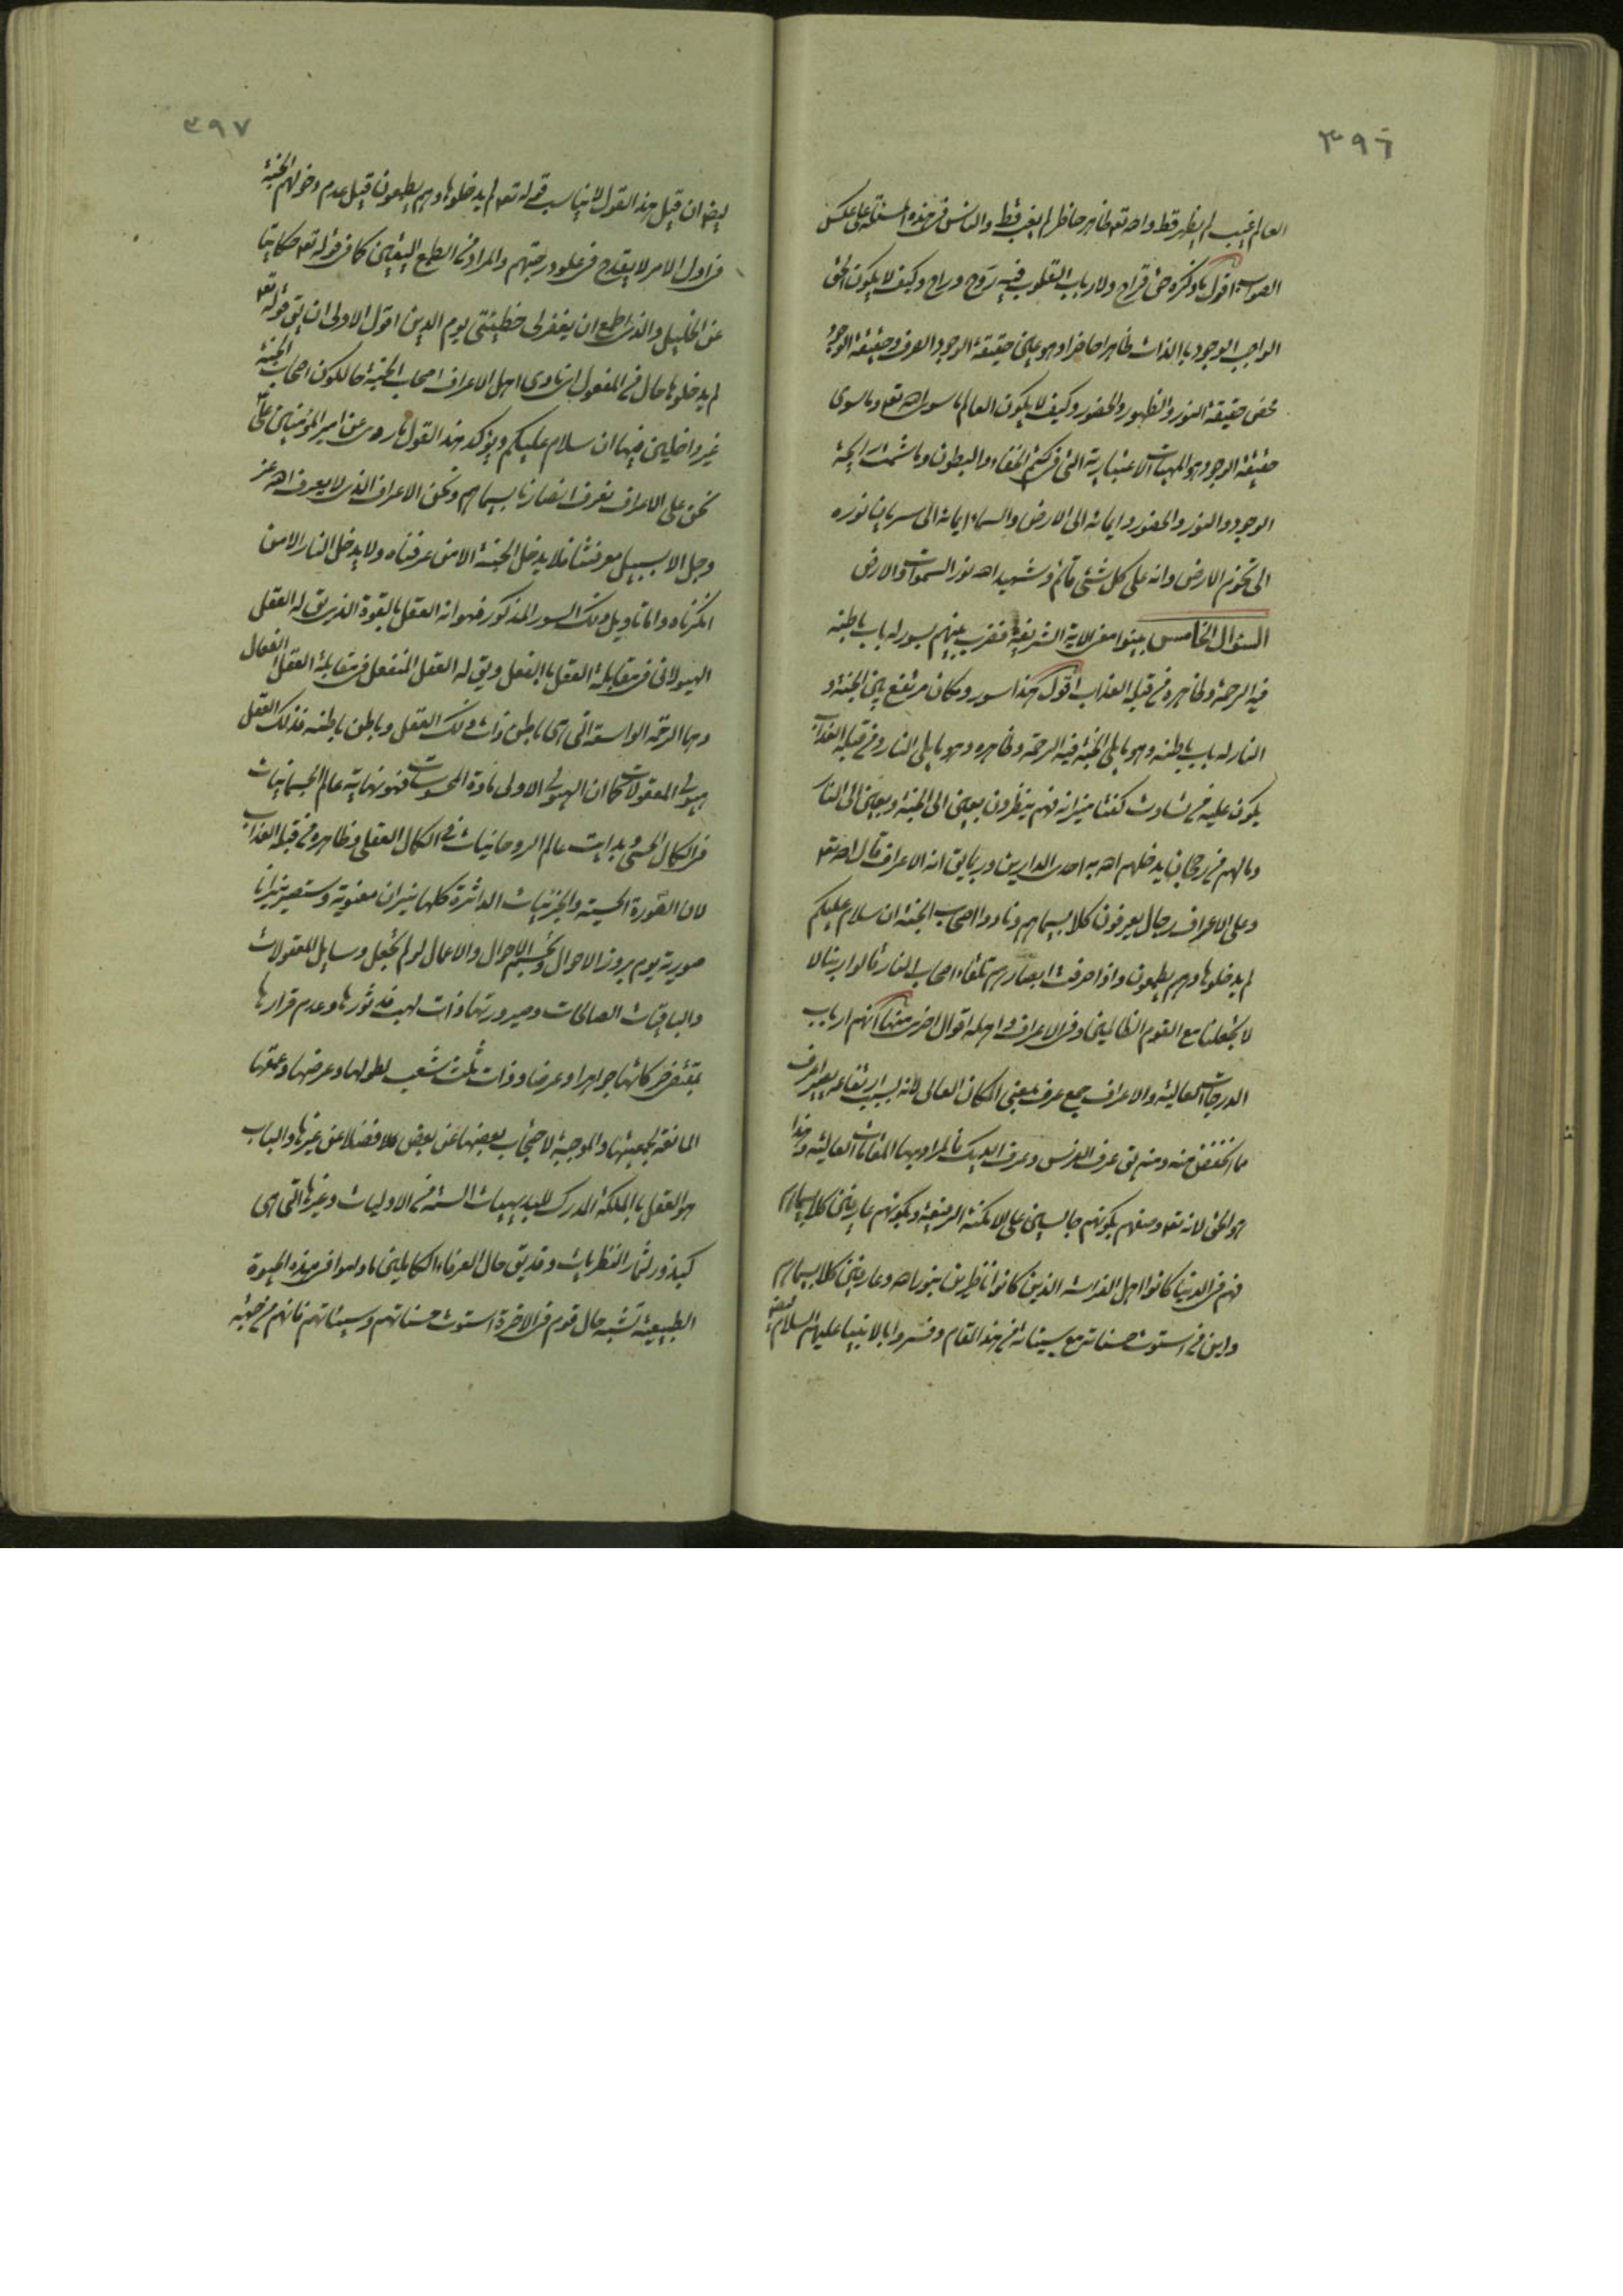 ٣٩٦
العالم غيب لم يظهر قط والله تعه ظاهر حاضر لم يغب قط والناس فى هذه المسئلة على عكس
الصواب اقول ما ذكره حق قراح ولارباب القلوب فيه روح وراح وكيف لا يكون الحق
الواجب الوجود بالذات ظاهرا حاضرا وهو عين حقيقة الوجود الصرف وحقيقة الوجود
محض حقيقة النور والظهور والحضور وكيف لا يكون العالم ما سوى الله تعه وما سوى
حقيقة الوجود هو المهيات الاعتبارية التى فى كتم الخفاء والبطون وما شمت رايحة
الوجود والنور والحضور وايماؤه الى الارض والسماء ايماء الى سريان نوره
الى تخوم الارض وانه على كل شئ قائم وشهيد الله نور السموات والارض
السؤال الخامس بينوا معنى الاية الشريفة فضرب بينهم بسور له باب باطنه
فيه الرحمة وظاهره من قبله العذاب اقول هذا سور ومكان مرتفع بين الجنة و
النار له باب باطنه وهو ما يلى الجنة فيه الرحمة وظاهره وهو ما يلى النار من قبله العذاب
يكون عليه من تساوت كفتا ميزانه فهم ينظرون بعين الى الجنة وبعين الى النار
وما لهم من رجحان يدخلهم الله به احدى الدارين وربما يق انه الاعراف قال الله تعه
وعلى الاعراف رجال يعرفون كلا بسيماهم ونادوا اصحاب الجنة ان سلام عليكم
لم يدخلوها وهم يطمعون واذا صرفت ابصارهم تلقاء اصحاب النار قالوا ربنا لا
لا تجعلنا مع القوم الظالمين وفى الاعراف واهله اقوال اخرى منها انهم ارباب
الدرجات العالية والاعراف جمع عرف بمعنى المكان العالى لانه بسبب ارتفاعه يصير اعرف
مما انخفض منه ومنه يق عرف الفرس وعرف الديك فالمراد بهما المقامات العالية وهذا
هو الحق لانه تعه وصفهم بكونهم جالسين على الامكنة الرفيعة وبكونهم عارفين كلا بسيماهم
فهم فى الدنيا كانوا اهل الفراسة الذين كانوا ناظرين بنور الله وعارفين كلا بسيماهم
واين من استوت حسناته مع سيئاته من هذا المقام وفسروا بالانبيا عليهم السلام
٣٩٧
ايضا ان قيل هذا القول لا يناسب قوله تعه لم يدخلوها وهم يطمعون قيل عدم دخولهم الجنة
فى اول الامر لا يقدح فى علو درجتهم والمراد من الطمع اليقين كما فى قوله تعه حكاية
عن الخليل والذى اطمع ان يغفر لى خطيئتى يوم الدين اقول الاولى ان يق قوله تعه
لم يدخلوها حال من المفعول اى نادى اهل الاعراف اصحاب الجنة حالكون اصحاب الجنة
غير داخلين فيها ان سلام عليكم ويؤكد هذا القول ما روى عن امير المؤمنين على
نحن على الاعراف نعرف انصارنا بسيماهم ونحن الاعراف الذى لا يعرف الله عز
وجل الا بسبيل معرفتنا فلا يدخل الجنة الا من عرفناه ولا يدخل النار الا من
انكرناه واما تاويل ذلك السور المذكور فهو انه العقل بالقوة الذى يق له العقل
الهيولانى فى مقابلة العقل بالفعل ويق له العقل المنفعل فى مقابلة العقل الفعال
وهما الرحمة الواسعة التى هى باطن ذات ذلك العقل وباطن باطنه فذلك العقل
هيولى المعقولات كما ان الهيولى الاولى مادة المحسوسات فهو نهاية عالم الجسمانيات
فى الكمال الحسى وبدايت عالم الروحانيات فى الكمال العقلى وظاهره من قبله العذاب
لان الصورة الحسية والجزئيات الداثرة كلها نيران معنوية وستصير نيرانا
صورية يوم بروز الاحوال وتجسم الاحوال والاعمال لو لم تجعل وسايل للمعقولات
والباقيات الصالحات وصيرورتها ذات لهب فدثورها وعدم قرارها
بمقتضى حركاتها جواهرا وعرضا وذات ثلث شعب لطولها وعرضها وعمقها
المانعة لجمعيتها والموجبة لاحتجاب بعضها عن بعض كلا فضلا عن غيرها والباب
هو العقل بالملكة المدرك للبديهيات الستة من الاوليات وغيرها التى هى
كبذور لثمار النظريات وقد يق حال العرفاء الكاملين ما داموا فى هذه الحيوة
الطبيعية تشبه حال قوم فى الاخرة استوت حسناتهم وسيئاتهم فانهم من جهة